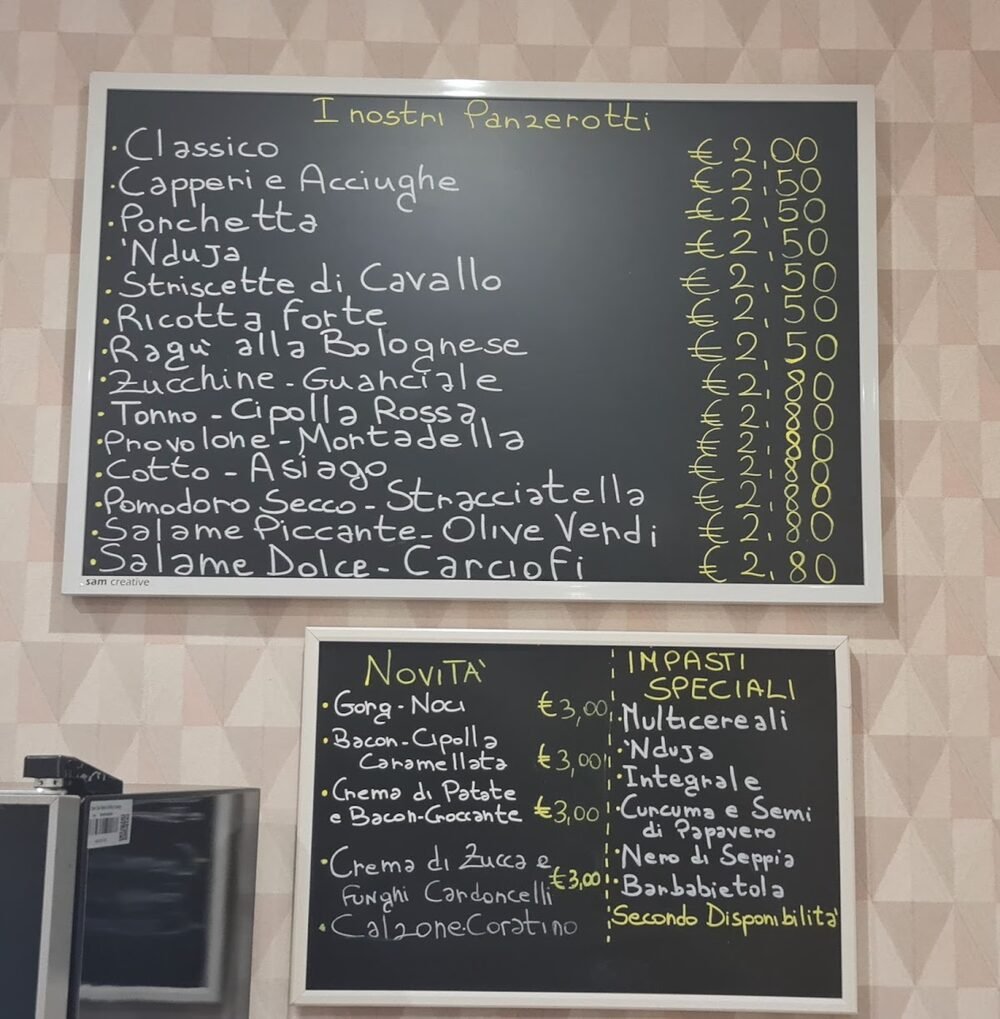 I nostri Panzerotti
· Classico € 2,00
· Capperi e Acciughe € 2,50
· Porchetta € 2,50
· 'Nduja € 2,50
· Striscette di Cavallo € 2,50
· Ricotta forte € 2,50
· Ragu' alla Bolognese € 2,50
· Zucchine - Guanciale € 2,80
· Tonno - Cipolla Rossa € 2,80
· Provolone - Mortadella € 2,80
· Cotto - Asiago € 2,80
· Pomodoro Secco - Stracciatella € 2,80
· Salame Piccante - Olive Verdi € 2,80
· Salame Dolce - Carciofi € 2,80
sam creative
NOVITA'
· Gorg - Noci €3,00
· Bacon - Cipolla
Caramellata €3,00
· Crema di Patate
e Bacon Croccante €3,00
· Crema di Zucca e
Funghi Cardoncelli €3,00
· Calzone Coratino
IMPASTI
SPECIALI
· Multicereali
· 'Nduja
· Integrale
· Curcuma e Semi
di Papavero
· Nero di Seppia
· Barbabietola
Secondo Disponibilita'